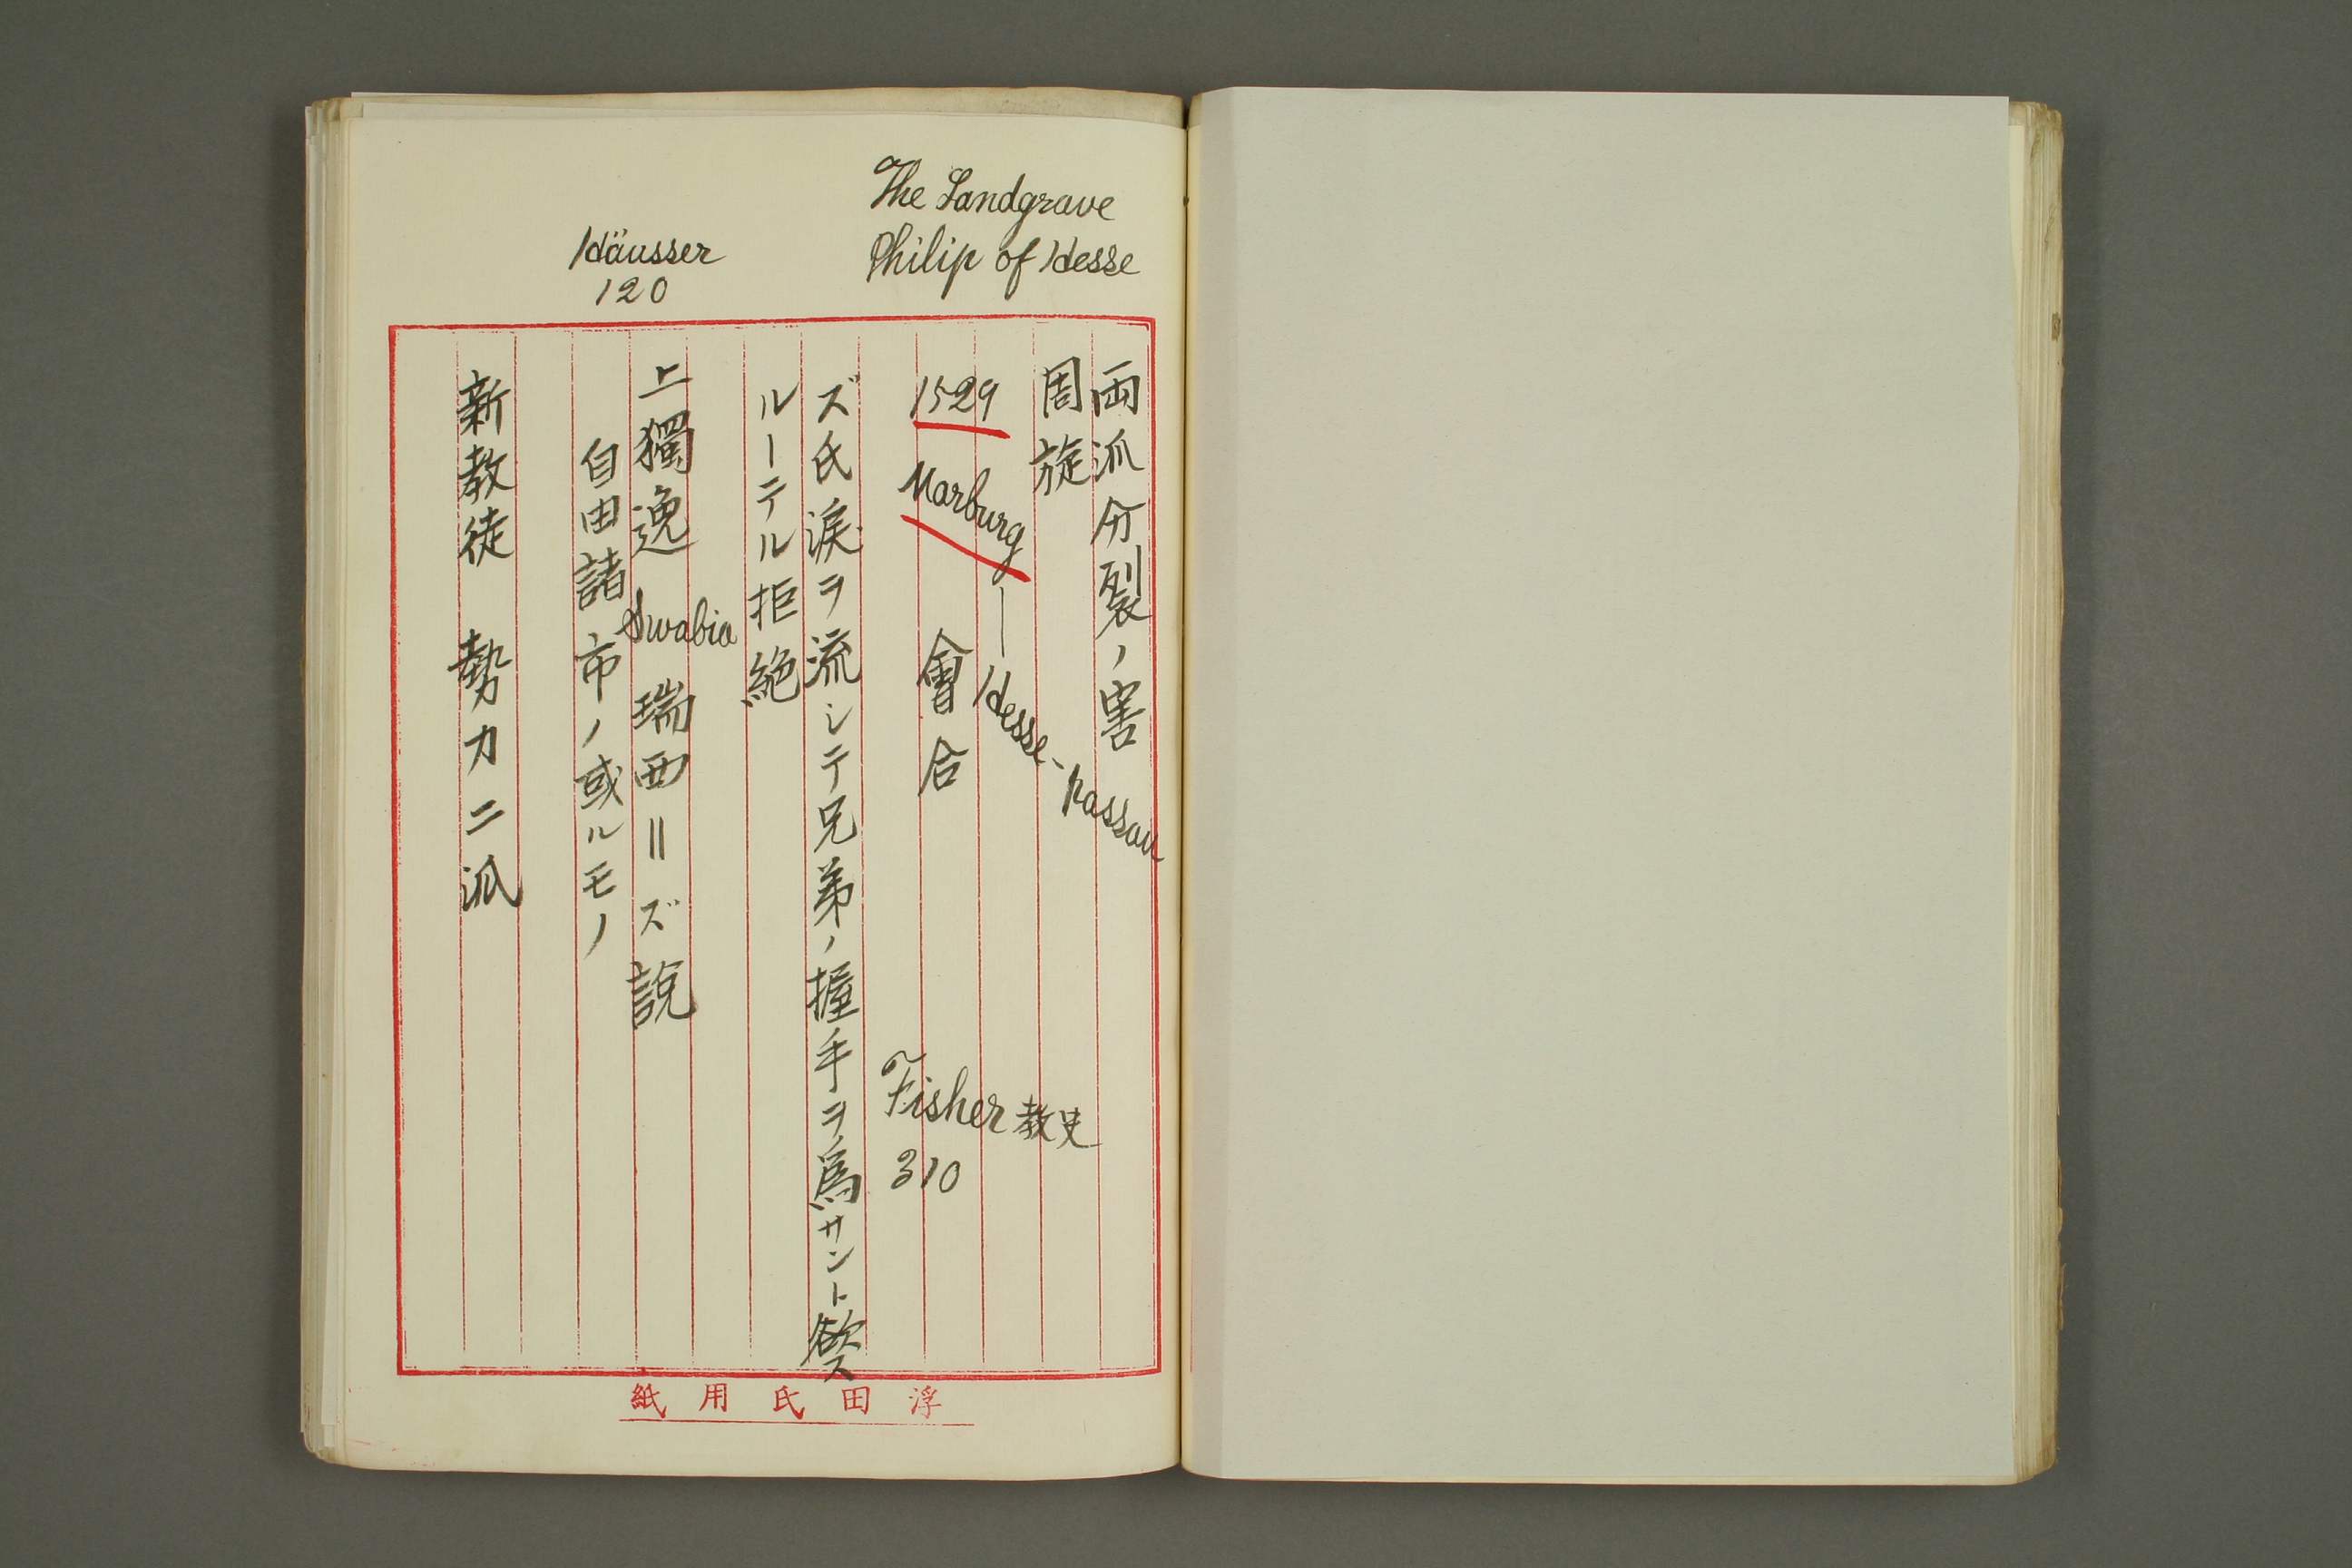 The Landgrave
Philip of Hesse
Häusser
120
両派分裂ノ害
周旋
1529 Marburg — Hesse-Nassau
會合
Fisher教史
310
ズ氏涙ヲ流シテ兄弟ノ握手ヲ爲サント欲ス
ルーテル拒絶
上獨逸 Swabia 瑞西=ズ說
自由諸市ノ或ルモノ
新教徒 勢力二派
浮田氏用紙